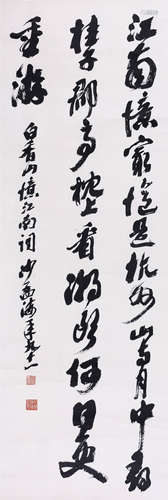 江南憶最憶是杭州山寺月中尋
桂子郡亭枕上看潮頭何日更
重游
白香山憶江南詞沙孟海年九十一